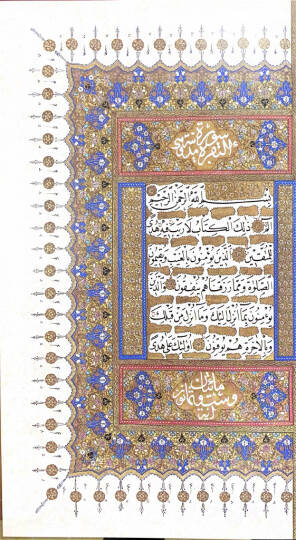 سورة
البقرة مدنية وهي
بسم الله الرحمن الرحيم
الم ذلك الكتاب لا ريب فيه هدى
للمتقين الذين يؤمنون بالغيب ويقيمون
الصلوة ومما رزقناهم ينفقون والذين
يؤمنون بما انزل اليك وما انزل من قبلك
وبالاخرة هم يوقنون اولئك على هدى
مائتان
وست وثمانون
آية